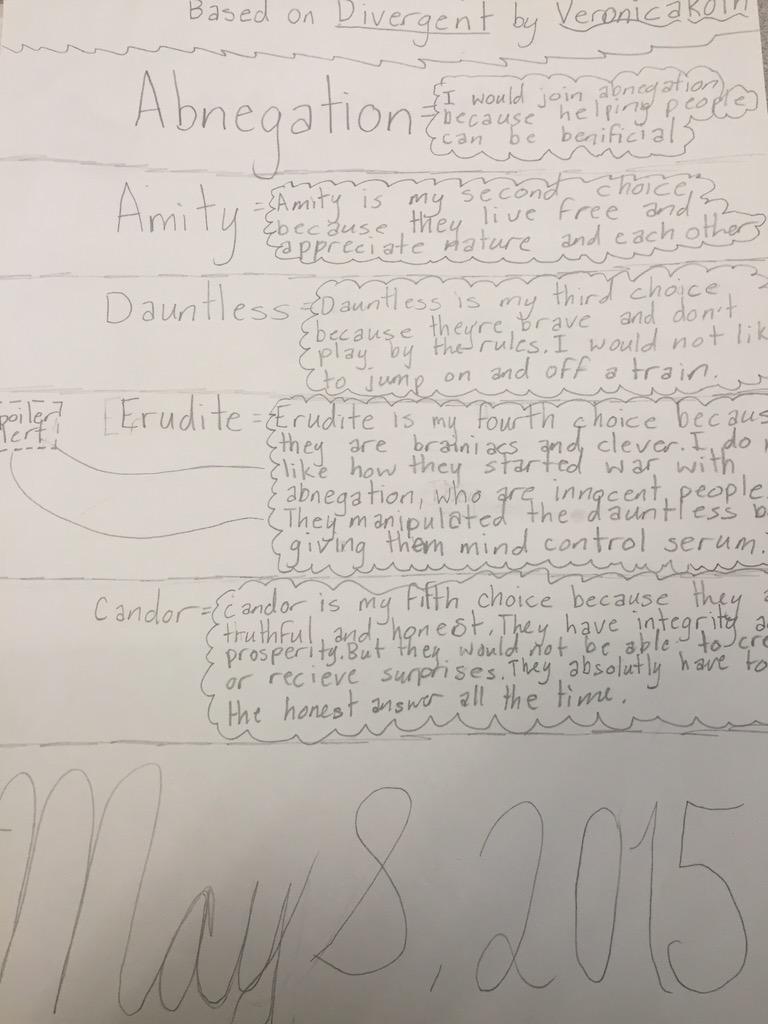 Based on Divergent by VeronicaKoth
Abnegation = I would join abnegation
because helping people
can be benificial
Amity = Amity is my second choice
because they live free and
appreciate nature and each other
Dauntless = Dauntless is my third choice
because theyre brave and don't
play by the rules. I would not lik
to jump on and off a train.
poiler
lert!
Erudite = Erudite is my fourth choice becaus
they are brainiacs and clever. I do
like how they started war with
abnegation, who are innocent people.
They manipulated the dauntless b
giving them mind control serum.
Candor = Candor is my fifth choice because they a
truthful and honest. They have integrity a
prosperity. But they would not be able to cre
or recieve surprises. They absolutly have to
the honest answer all the time.
May 8, 2015